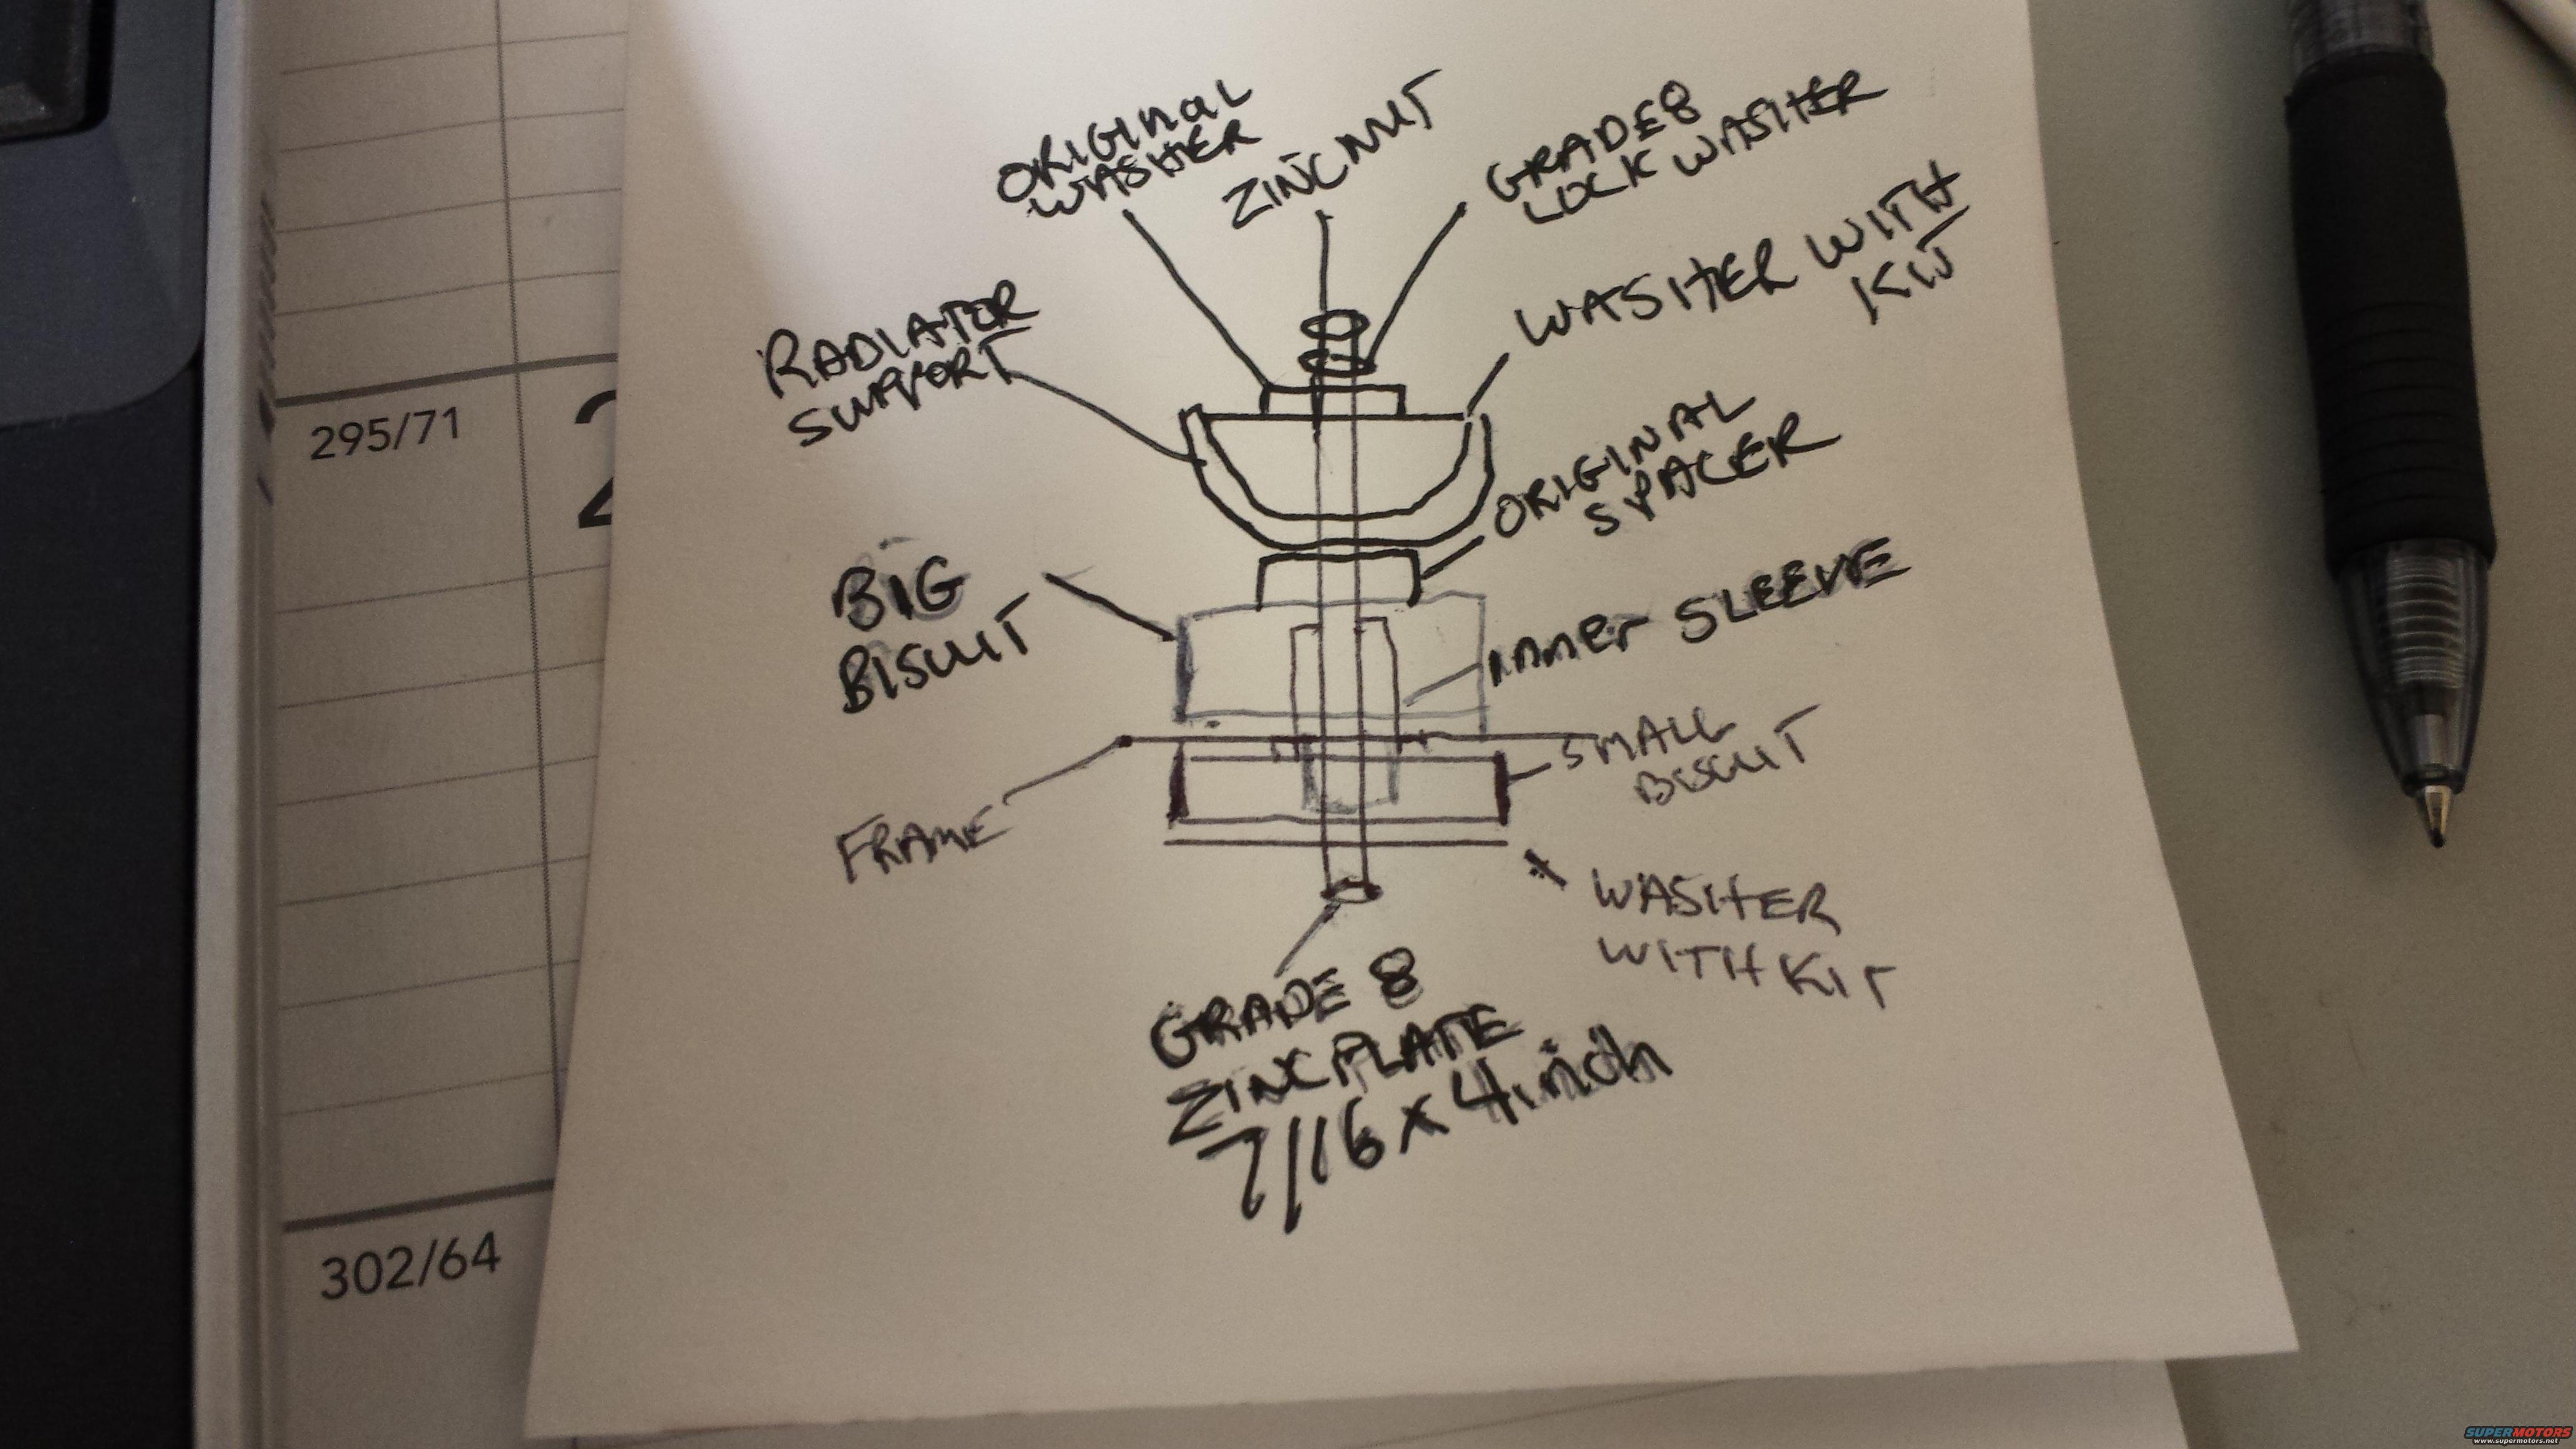 ORIGINAL
WASHER
ZINC NUT
GRADE 8
LOCK WASHER
WASHER WITH
KIT
RADIATOR
SUPPORT
ORIGINAL
SPACER
BIG
BISUIT
INNER SLEEVE
SMALL
BISUIT
FRAME
WASHER
WITH KIT
GRADE 8
ZINC PLATE
7/16 x 4 inch
295/71
2
302/64
SUPERMOTORS
www.supermotors.net